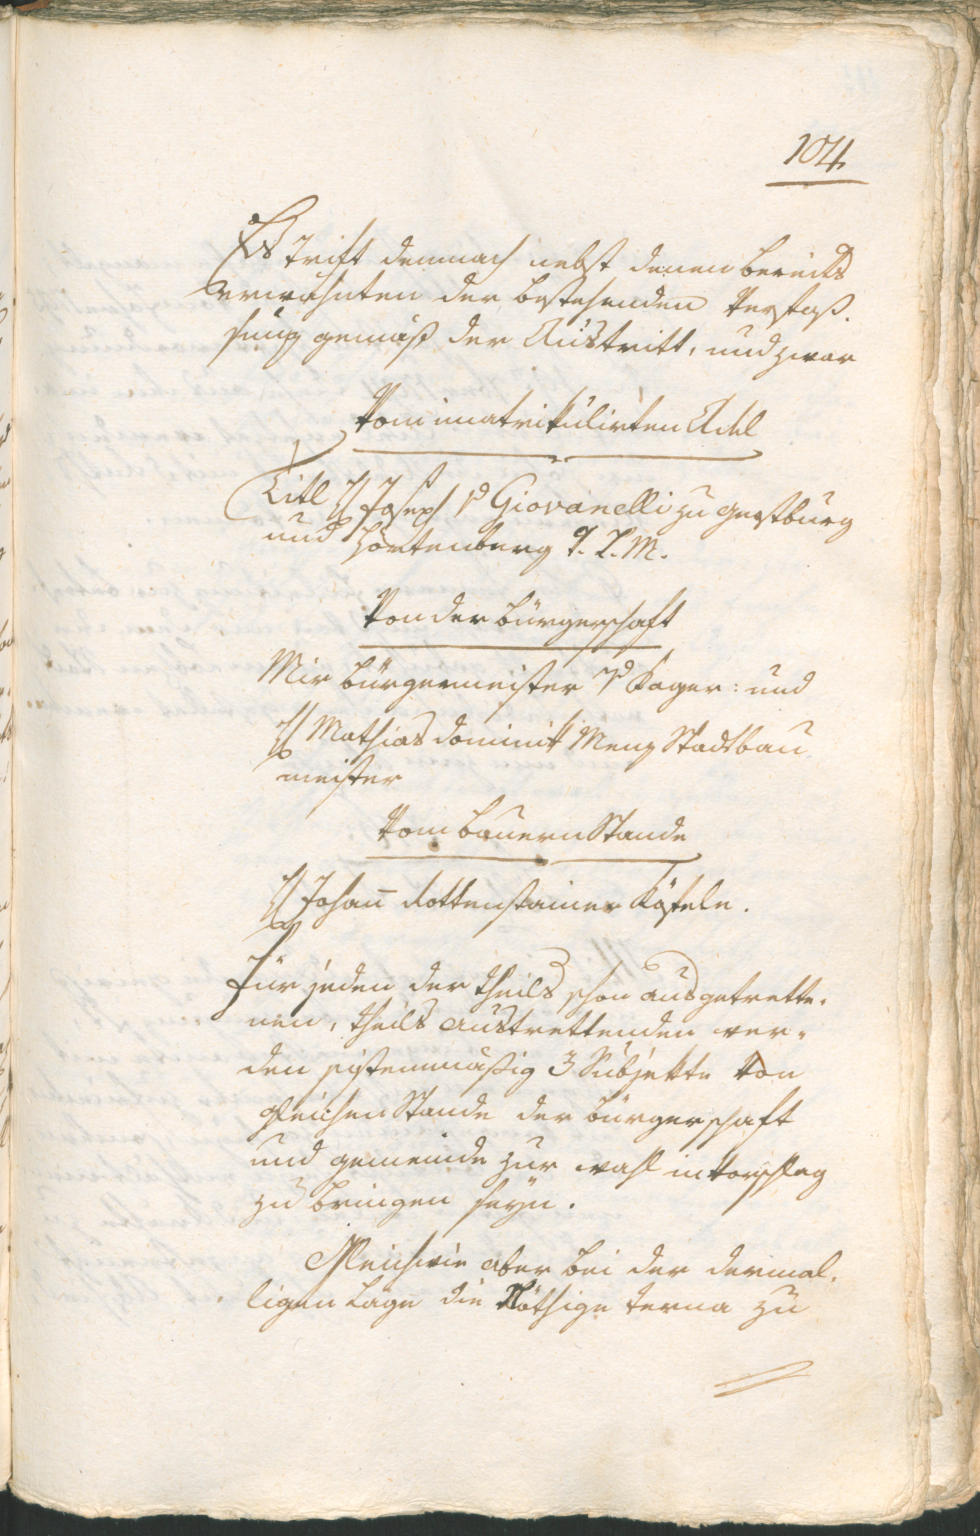 104.
Es Trift demnach nebst denen bereits
erwähnten der bestehenden Verfaß¬
sung gemäß der Austritt, und zwar
Vom imatrikulirten Adel
Titl H Joseph v Giovanelli zu Gerstburg
und Hörtenberg
Von der Bürgerschaft
Mir Bürgermeister v Kager: und
H Mathias Dominik Menz Stadtbau
meister
Vom Bauern Stande
H Johañ Rottenstainer Köfele.
Für jeden der theils schon ausgetrette¬
nen, theils austrettenden wer¬
den sistemmäßig 3 Subjekte von
gleichen Stande der Bürgerschaft
und Gemeinde zur wahl in Vorschlag
zu bringen seyn.
Gleichwie aber bei der dermal¬
ligen Lage die Nöthige Terna zu